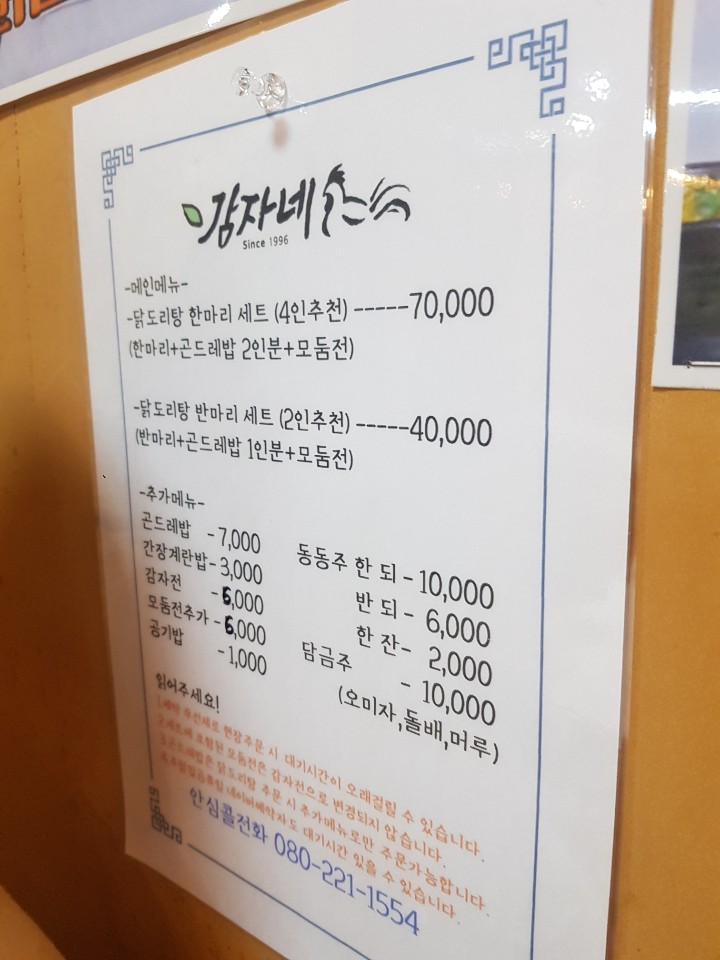 감자네
Since 1996
-메인메뉴-
-닭도리탕 한마리 세트 (4인추천) -----70,000
(한마리+곤드레밥 2인분+모둠전)
-닭도리탕 반마리 세트 (2인추천) -----40,000
(반마리+곤드레밥 1인분+모둠전)
-추가메뉴-
곤드레밥 -7,000
간장계란밥-3,000
감자전 -6,000
모둠전추가 -6,000
공기밥 -1,000
동동주 한 되 - 10,000
반 되 - 6,000
한 잔 - 2,000
담금주 - 10,000
(오미자,돌배,머루)
읽어주세요!
1.예약 우선제로 현장주문 시 대기시간이 오래걸릴 수 있습니다.
2.세트에 포함된 모둠전은 감자전으로 변경되지 않습니다.
3.곤드레밥은 닭도리탕 주문 시 추가메뉴로만 주문가능합니다.
네이버예약자도 대기시간 있을 수 있습니다.
안심콜전화 080-221-1554